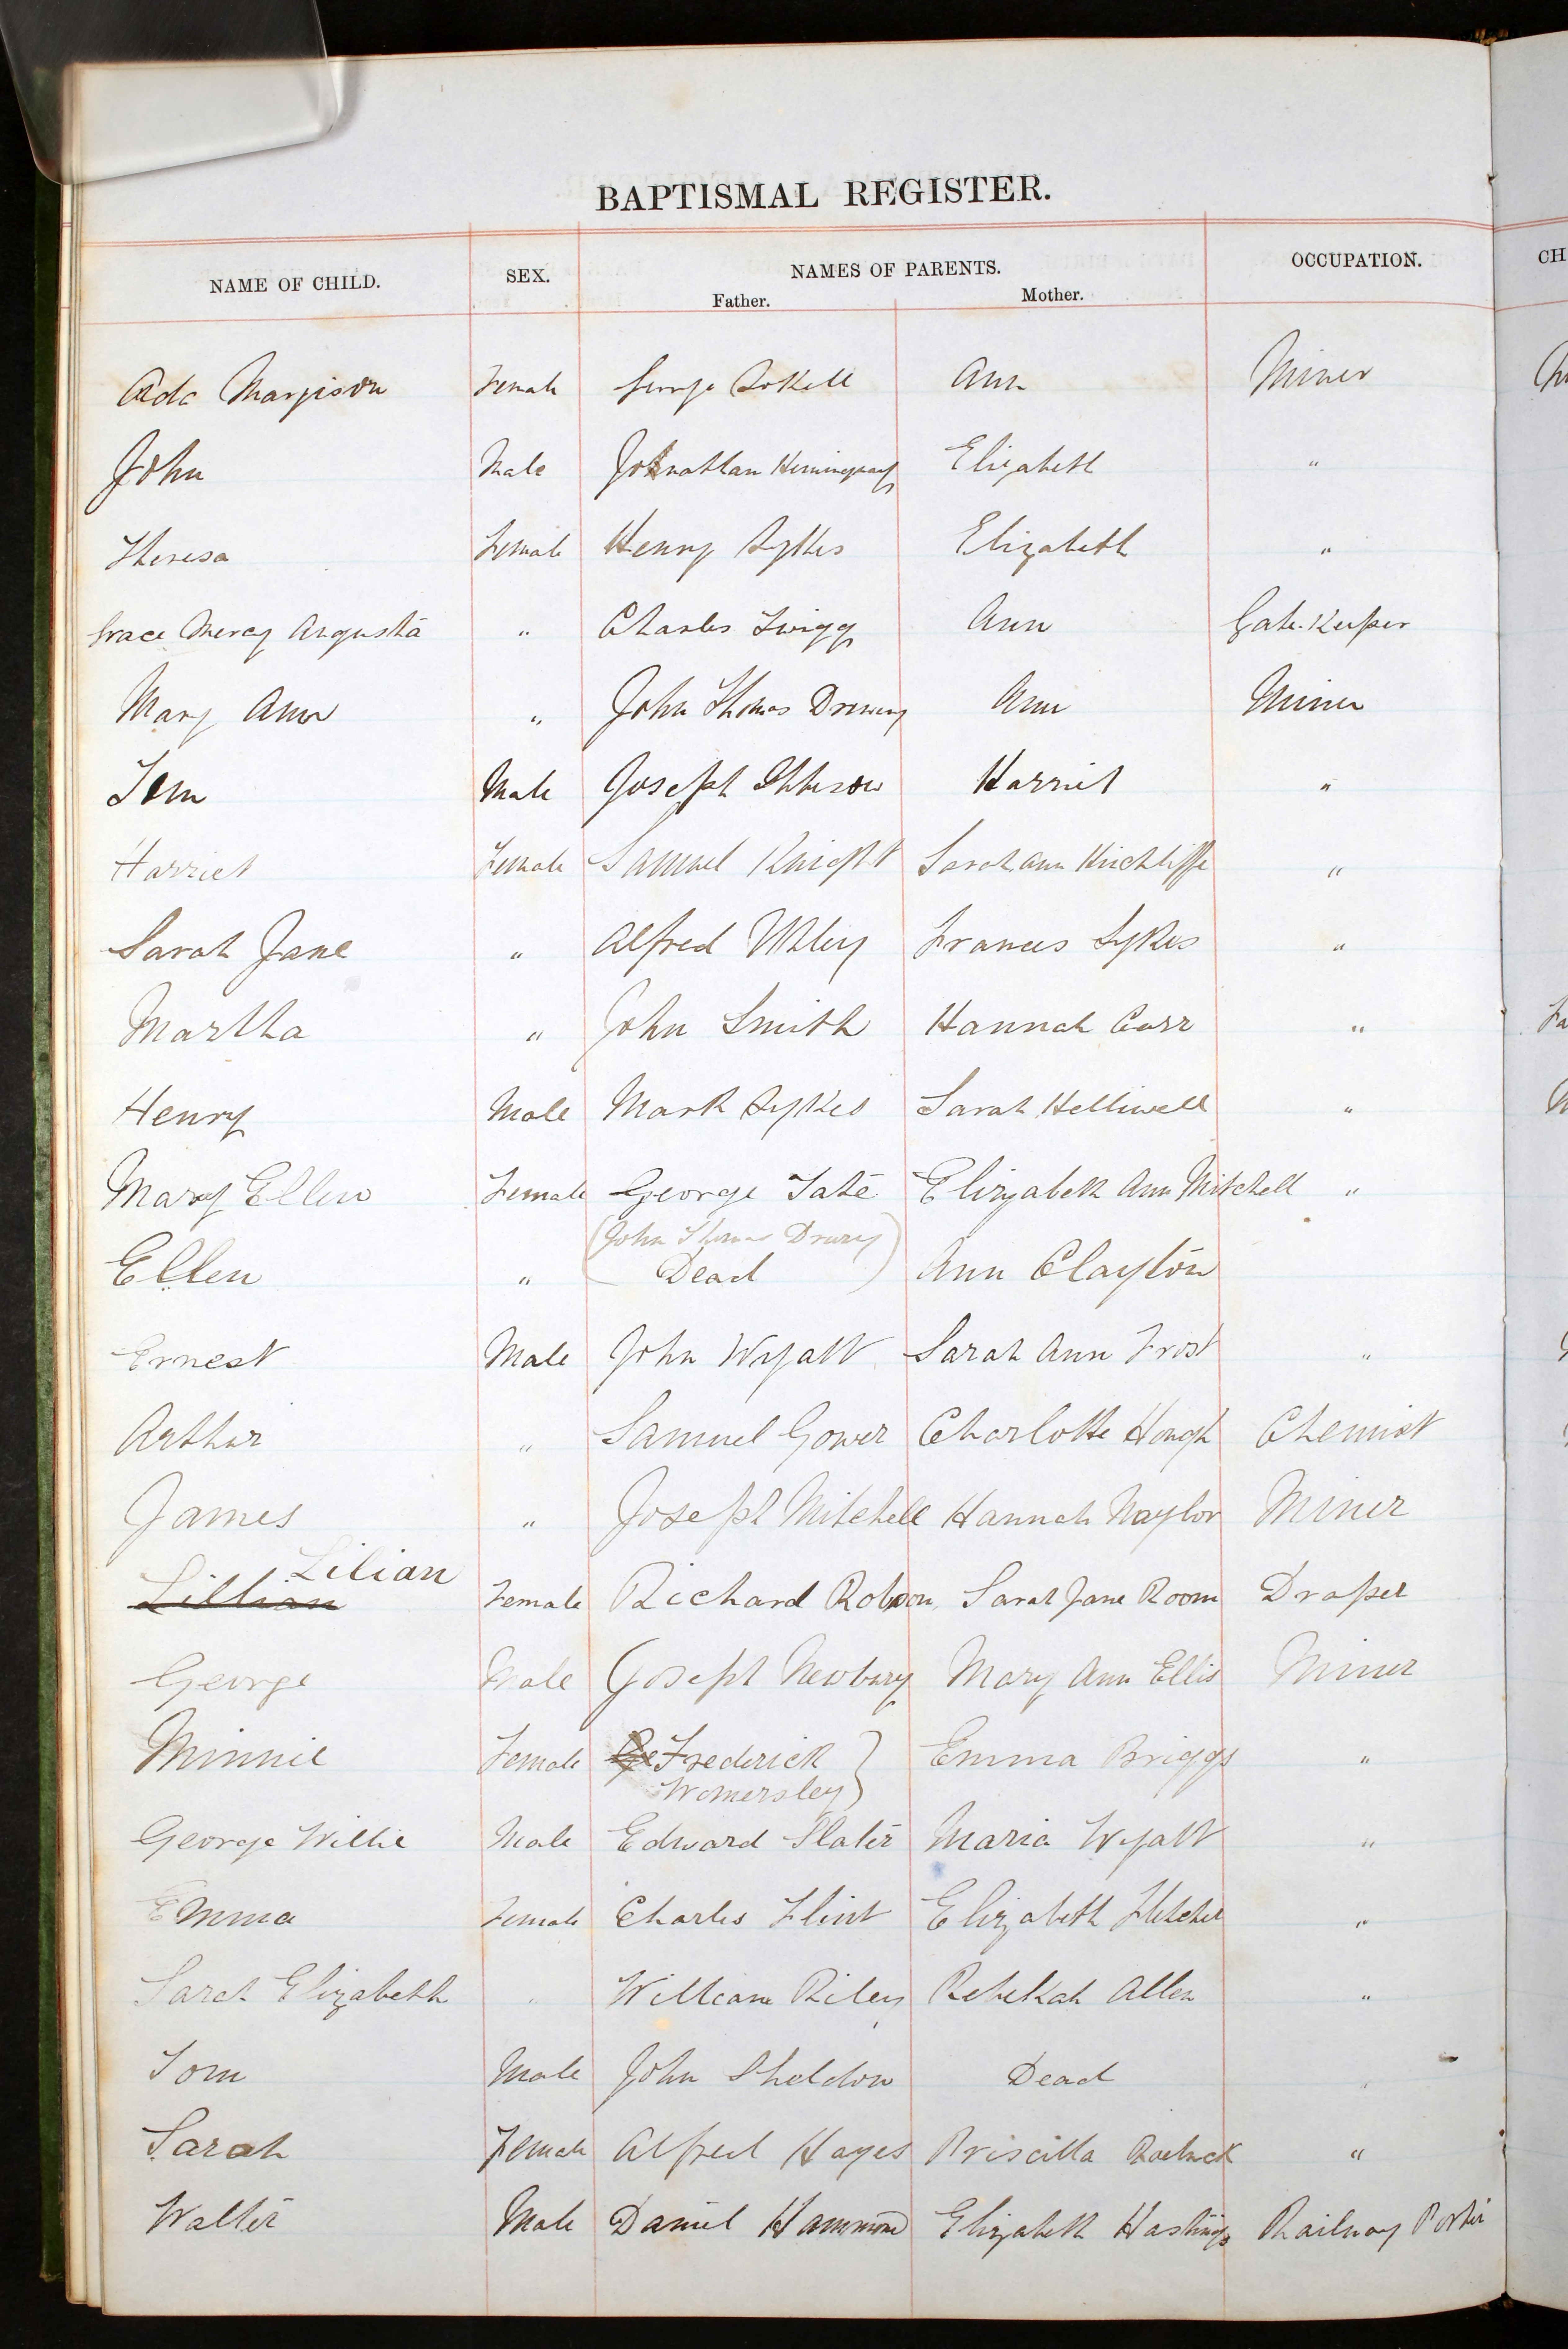 BAPTISMAL REGISTER.
NAME OF CHILD. SEX. NAMES OF PARENTS. OCCUPATION. CH
Father. Mother.
Ada Margison Female George Ann Miner
John Male Johnathan Hemingway Elizabeth "
Theresa Female Henry Sykes Elizabeth "
Grace Mercy Augusta " Charles Twigg Ann Gate-Keeper
Mary Ann " John Thomas Drewery Ann Miner
Tom Male Joseph Ibbeson Harriet "
Harriet Female Samuel Knight Sarah Ann Hinchliffe "
Sarah Jane " Alfred Utley Frances Sykes "
Martha " John Smith Hannah Carr "
Henry Male Mark Sykes Sarah Helliwell "
Mary Ellen Female George Tate Elizabeth Ann Mitchell "
(John Thomas Drury
Ellen " Dead) Ann Clayton
Ernest Male John Wyatt Sarah Ann Frost "
Arthur " Samuel Gower Charlotte Hough Chemist
James " Joseph Mitchell Hannah Naylor Miner
Lilian
Lillian Female Richard Robson Sarah Jane Room Draper
George Male Joseph Newbury Mary Ann Ellis Miner
Minnie Female Ge Frederick } Emma Briggs "
Womersley
George Willie Male Edward Slater Maria Wyatt "
Emma Female Charles Flint Elizabeth Fletcher "
Sarah Elizabeth " William Riley Rebekah Allen "
Tom Male John Sheldon Dead
Sarah Female Alfred Hayes Priscilla Roebuck "
Walter Male Daniel Hammond Elizabeth Hastings Railway Porter